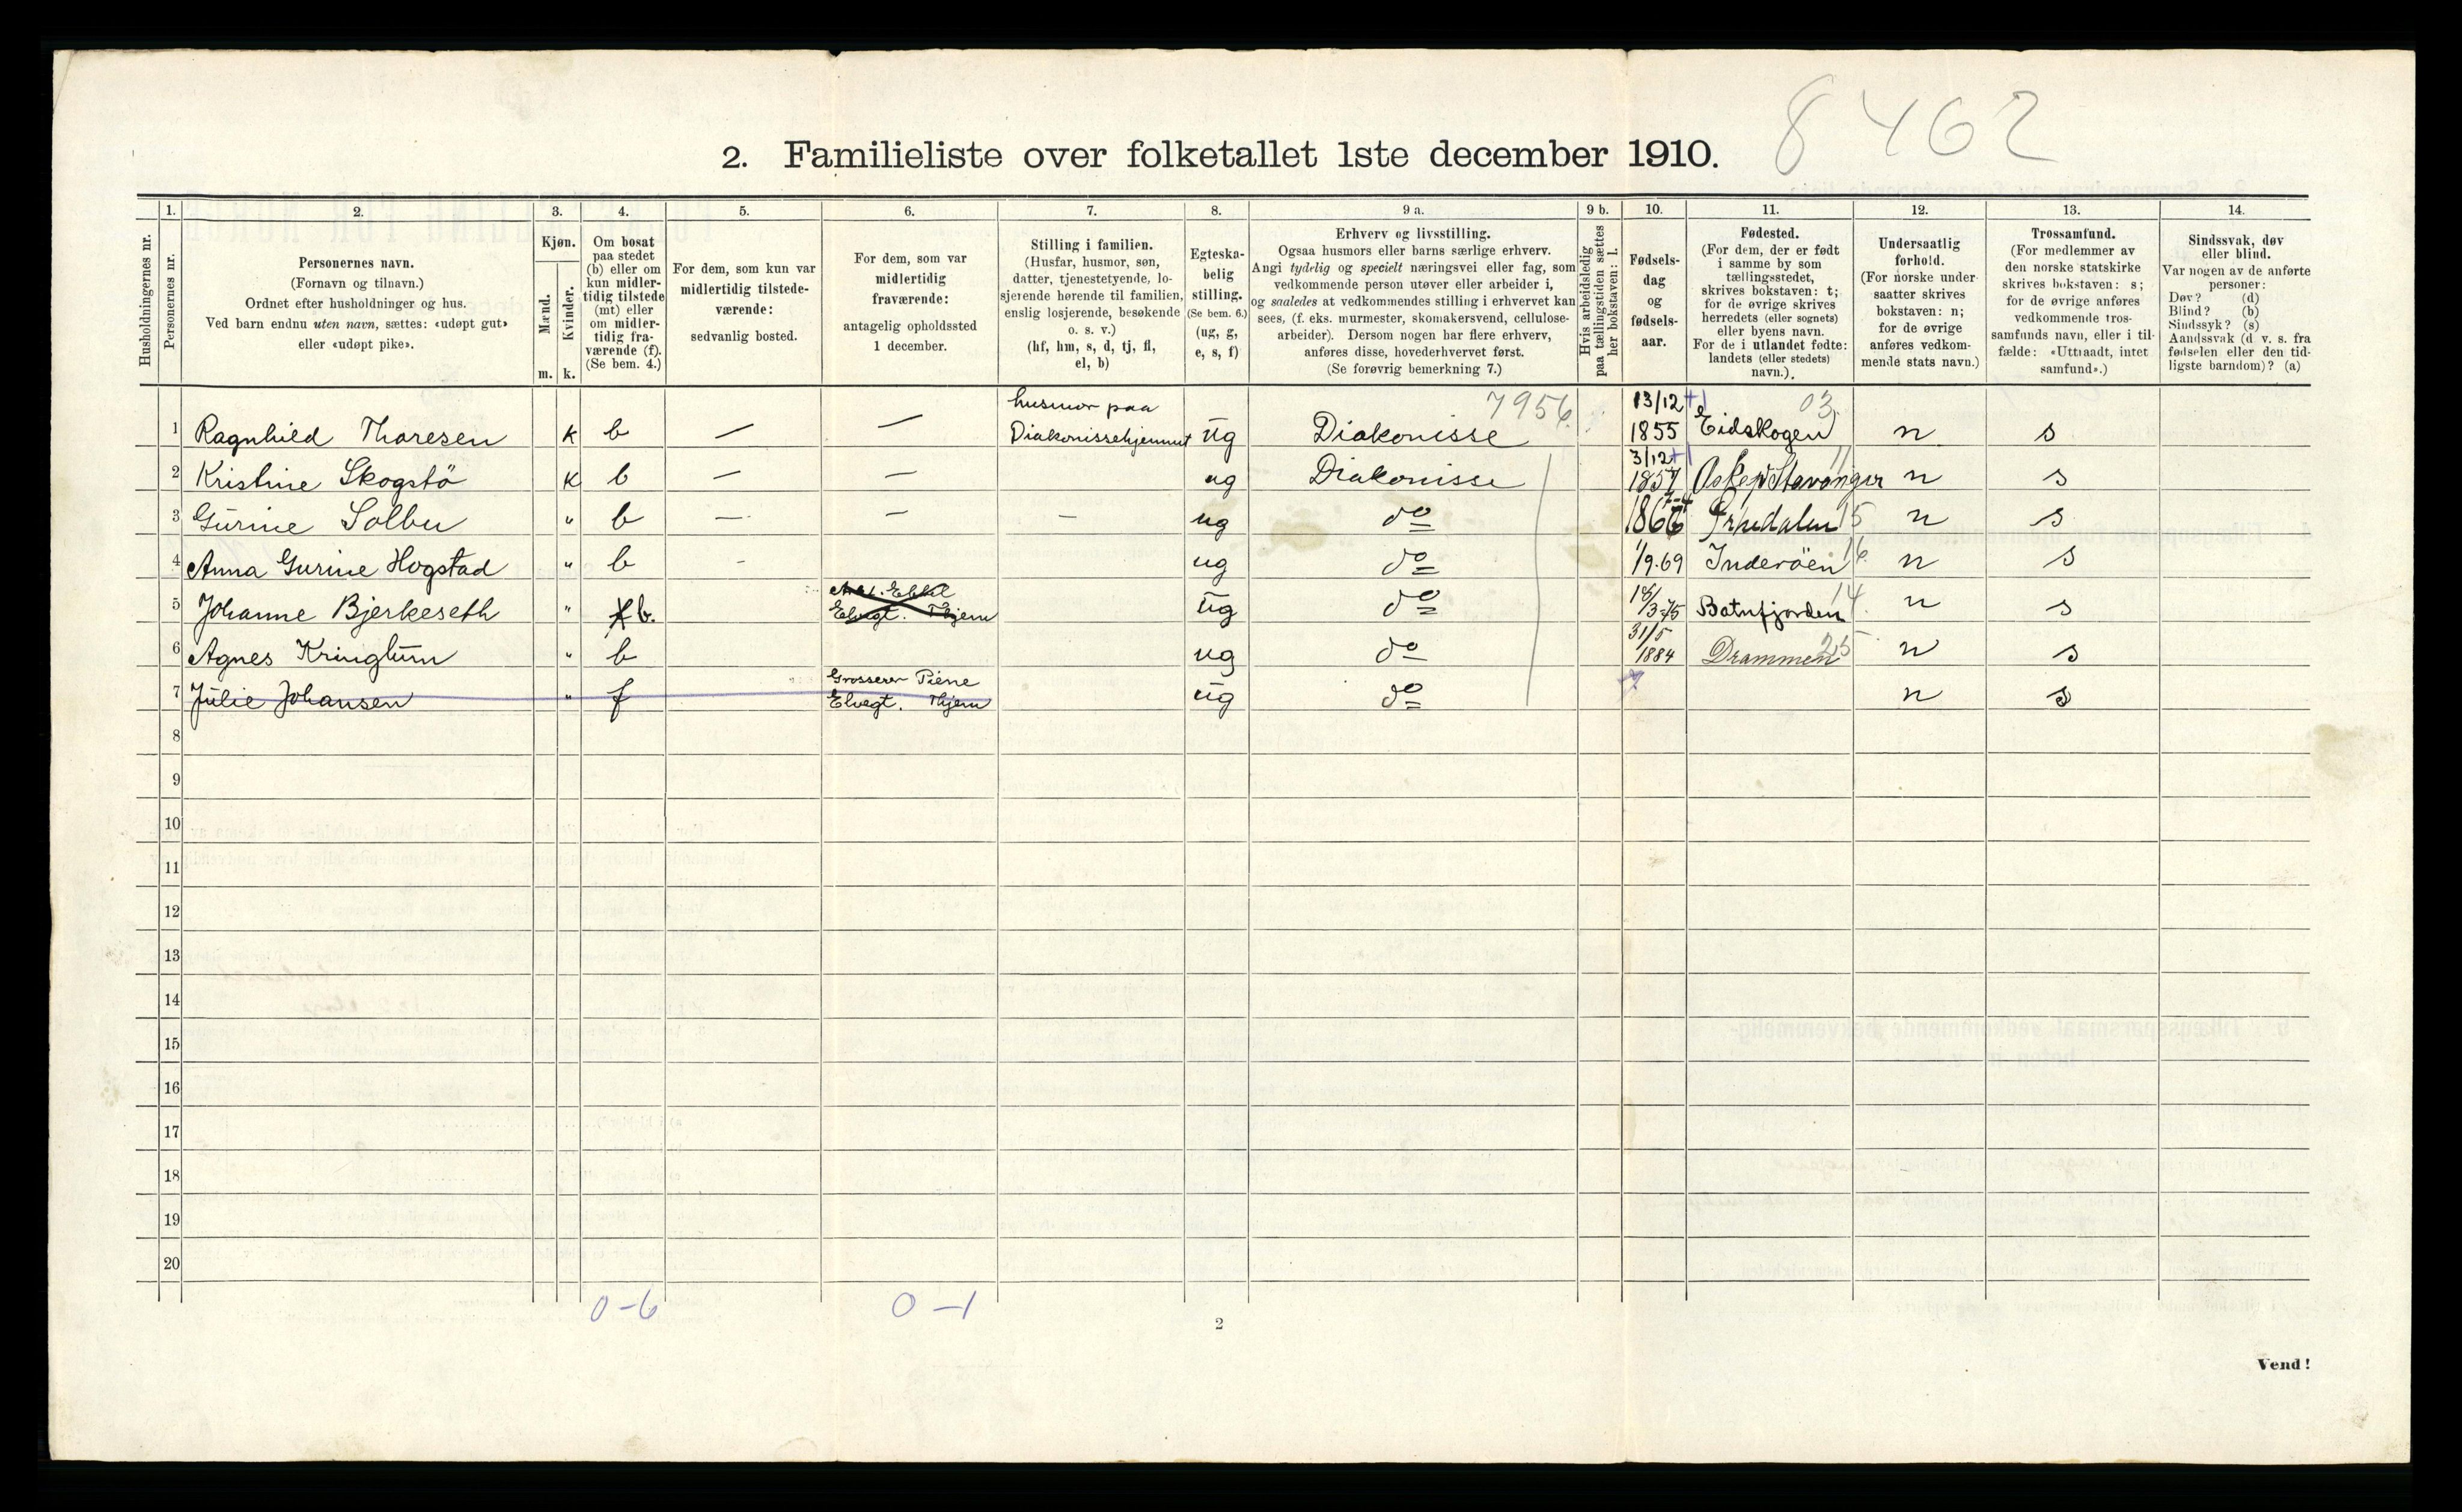 8462
2. Familieliste over folketallet 1ste december 1910.
Husholdningernes nr.
1. Personernes nr.
2. Personernes navn.
(Fornavn og tilnavn.)
Ordnet efter husholdninger og hus.
Ved barn endnu uten navn, sættes: «udøpt gut»
eller «udøpt pike».
3. Kjøn.
Mænd. m.
Kvinder. k.
4. Om bosat
paa stedet
(b) eller om
kun midler-
tidig tilstede
(mt) eller
om midler-
tidig fra-
værende (f).
(Se bem. 4.)
5. For dem, som kun var
midlertidig tilstede-
værende:
sedvanlig bosted.
6. For dem, som var
midlertidig
fraværende:
antagelig opholdssted
1 december.
7. Stilling i familien.
(Husfar, husmor, søn,
datter, tjenestetyende, lo-
sjerende hørende til familien,
enslig losjerende, besøkende
o. s. v.)
(hf, hm, s, d, tj, fl,
el, b)
8. Egteska-
belig
stilling.
(Se bem. 6.)
(ug, g,
e, s, f)
9 a. Erhverv og livsstilling.
Ogsaa husmors eller barns særlige erhverv.
Angi tydelig og specielt næringsvei eller fag, som
vedkommende person utøver eller arbeider i,
og saaledes at vedkommendes stilling i erhvervet kan
sees, (f. eks. murmester, skomakersvend, cellulose-
arbeider). Dersom nogen har flere erhverv,
anføres disse, hovederhvervet først.
(Se forøvrig bemerkning 7.)
9 b. Hvis arbeidsledig
paa tællingstiden sættes
her bokstaven: l.
10. Fødsels-
dag
og
fødsels-
aar.
11. Fødested.
(For dem, der er født
i samme by som
tællingsstedet,
skrives bokstaven: t;
for de øvrige skrives
herredets (eller sognets)
eller byens navn.
For de i utlandet fødte:
landets (eller stedets)
navn.).
12. Undersaatlig
forhold.
(For norske under-
saatter skrives
bokstaven: n;
for de øvrige
anføres vedkom-
mende stats navn.)
13. Trossamfund.
(For medlemmer av
den norske statskirke
skrives bokstaven: s;
for de øvrige anføres
vedkommende tros-
samfunds navn, eller i til-
fælde: «Uttraadt, intet
samfund».)
14. Sindssvak, døv
eller blind.
Var nogen av de anførte
personer:
Døv? (d)
Blind? (b)
Sindssyk? (s)
Aandssvak (d v. s. fra
fødselen eller den tid-
ligste barndom)? (a)
1 Ragnhild Thoresen k b — — husmor paa Diakonissehjemmet ug Diakonisse 7956 13/12 1855 Eidskogen 03. n s
2 Kristine Skogstö k b — — ug Diakonisse 3/12 1857 Stavanger 11 n s
3 Gurine Solbu " b — — — ug do 15 n s
4 Anna Gurine Hogstad " b - ug do 1/9.69 Inderöen 16. n s
5 Johanne Bjerkeseth " f b. Elvegt. Thjem ug do 18/3.75 Batnfjorden 14. n s
6 Agnes Kringlum " b ug do 31/5 1884 Drammen 25 n s
7 Julie Johansen " f Grosserer Piene Elvegt. Thjem ug do n s
8
9
10
11
12
13
14
15
16
17
18
19
20
0-6
0-1
2
Vend!